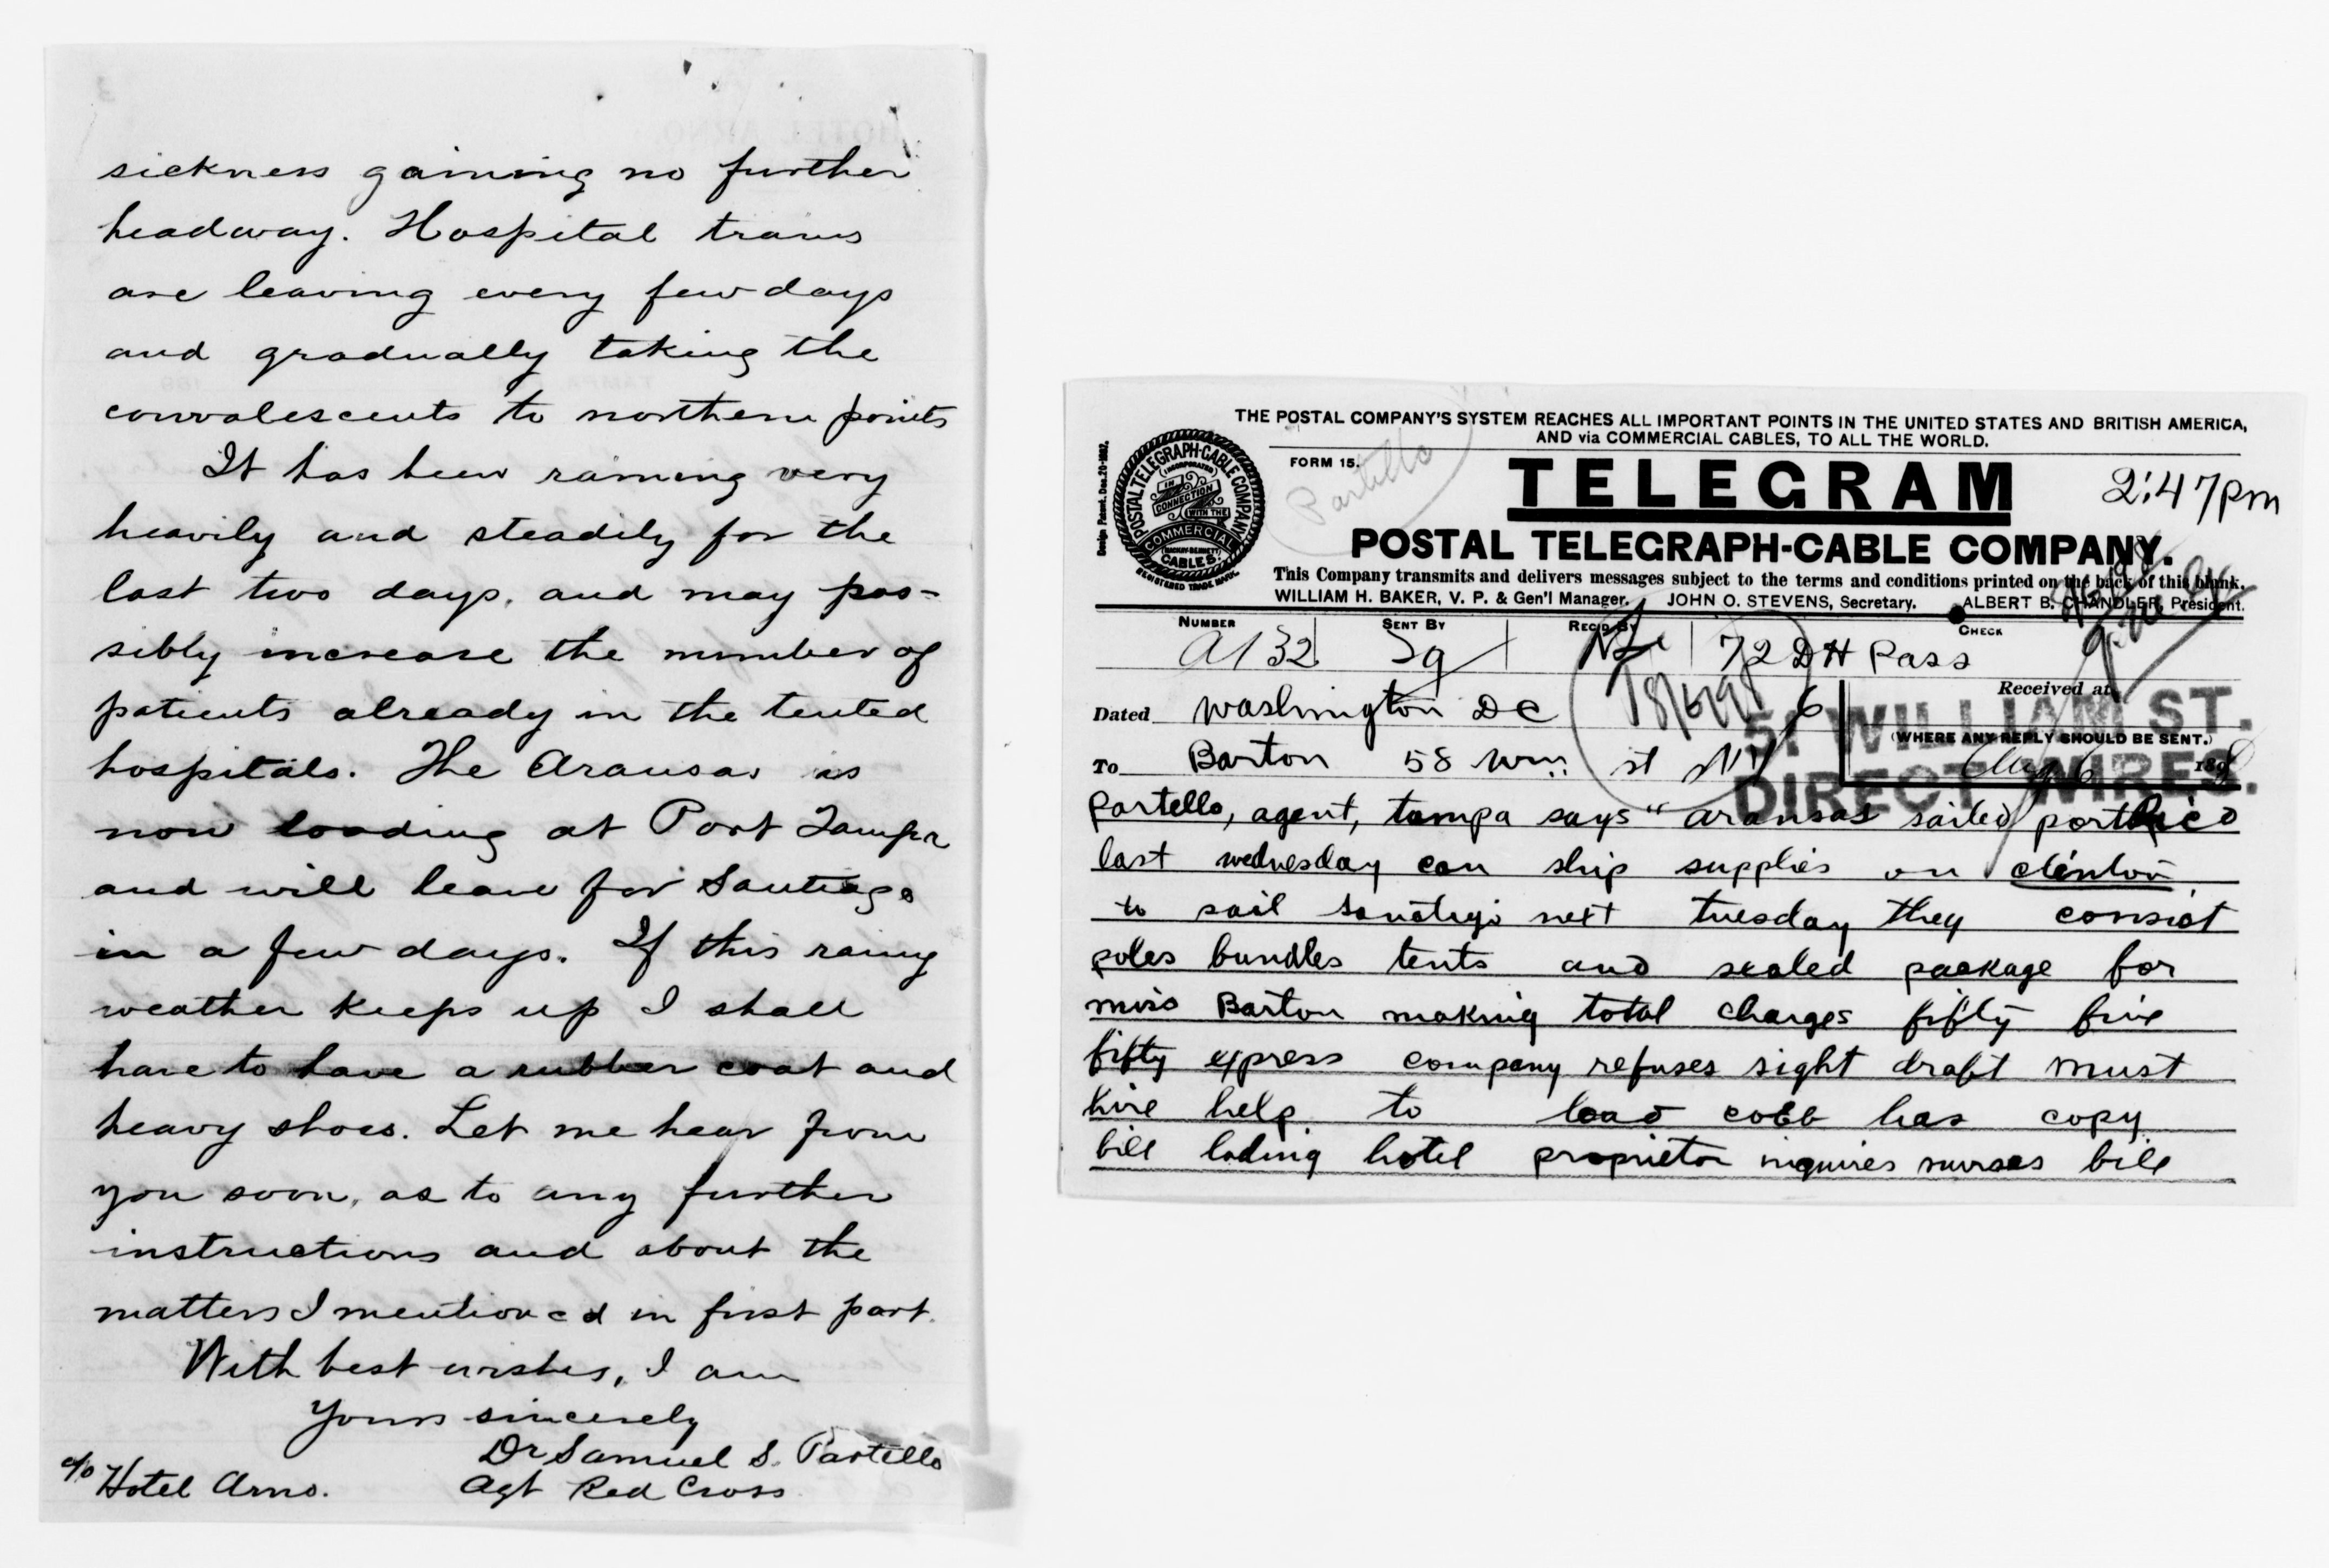 sickness gaining no further
headway. Hospital trains
are leaving every few days
and gradually taking the
convalescents to northern points
It has been raining very
heavily and steadily for the
last two days, and may pos-
sibly increase the number of
patients already in the tented
hospitals. The Aransas is
now loading at Port Tampa
and will leave for Santiago
in a few days. If this rainy
weather keeps up I shall
have to have a rubber coat and
heavy shoes. Let me hear from
you soon, as to any further
instructions and about the
matters I mentioned in first part.
With best wishes, I am
Yours sincerely
Dr Samuel S. Partello
c/o Hotel Arno. Agt Red Cross
THE POSTAL COMPANY'S SYSTEM REACHES ALL IMPORTANT POINTS IN THE UNITED STATES AND BRITISH AMERICA,
AND via COMMERCIAL CABLES, TO ALL THE WORLD.
Design Patent, Dec. 20-1892.
POSTAL TELEGRAPH-CABLE COMPANY
(INCORPORATED)
IN CONNECTION WITH THE
COMMERCIAL
(MACKAY-BENNETT)
CABLES.
REGISTERED TRADE MARK.
FORM 15.
Partello
TELEGRAM
2:47pm
POSTAL TELEGRAPH-CABLE COMPANY.
This Company transmits and delivers messages subject to the terms and conditions printed on the back of this blank.
WILLIAM H. BAKER, V. P. & Gen'l Manager. JOHN O. STEVENS, Secretary. ALBERT B. CHANDLER, President.
NUMBER SENT BY REC'D BY CHECK
A132 Sg 72 DH Pass
Dated Washington DC 6
8/6/98
Received at
51 WILLIAM ST.
(WHERE ANY REPLY SHOULD BE SENT.)
DIRECT WIRES.
To Barton 58 Wm st NY Aug 6 1898
Partello, agent, tampa says "aransas sailed portorico
last wednesday can ship supplies on clinton
to sail santiago next tuesday they consist
poles bundles tents and sealed package for
miss Barton making total charges fifty five
fifty express company refuses sight draft must
hire help to load cobb has copy
bill lading hotel proprietor inquires nurses bill